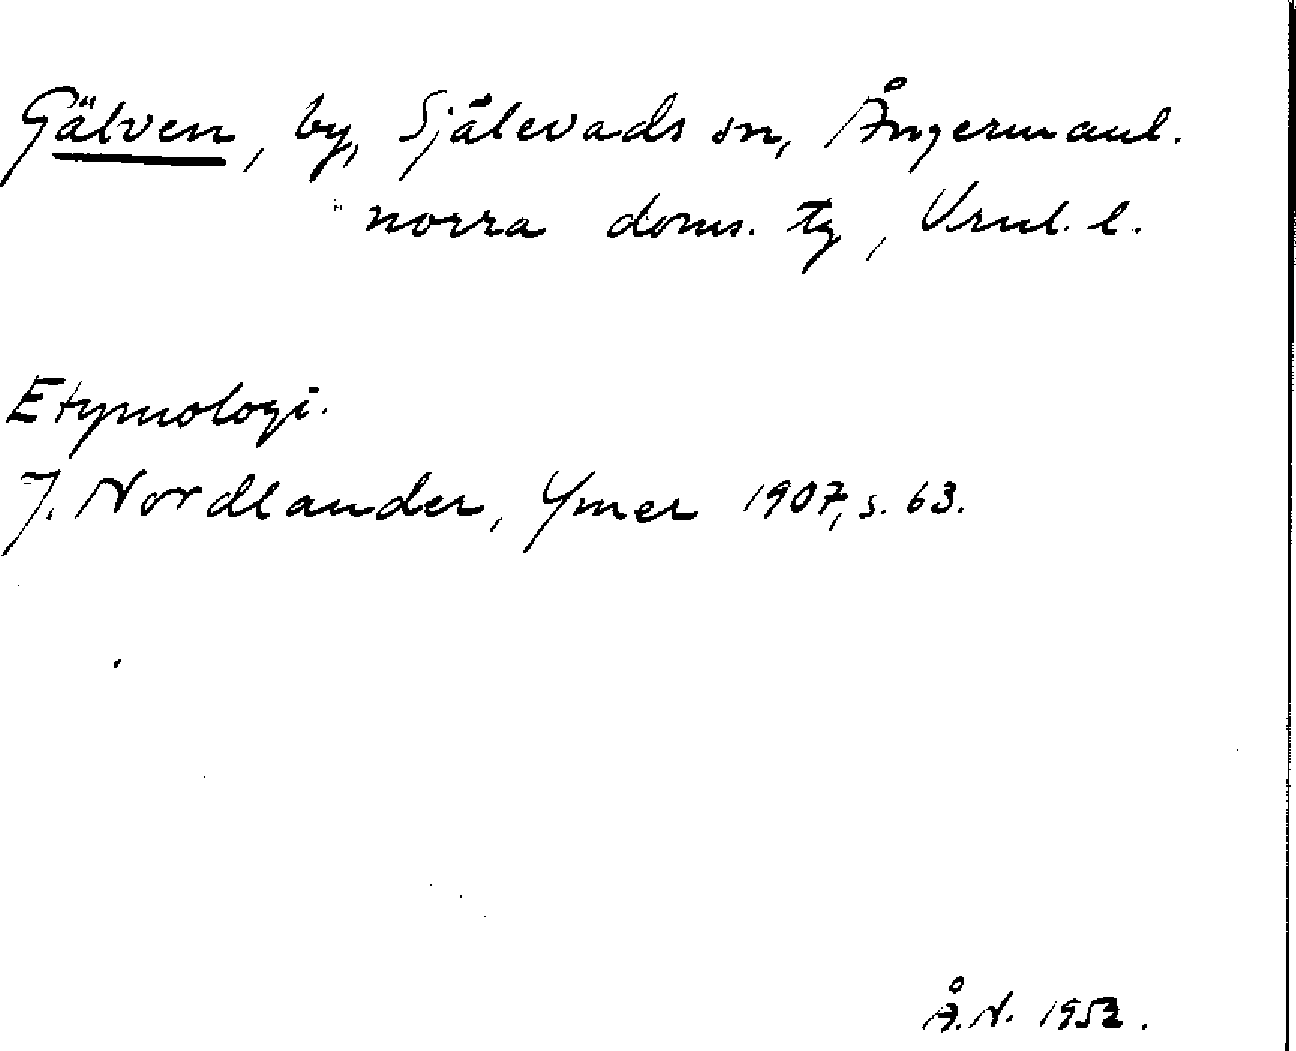 Gälven, by, Själevads sn, Ångermanl.
norra doms. tg, Vrnl. l.
Etymologi.
J. Nordlander, Ymer 1907, s. 63.
Å.N. 1952.